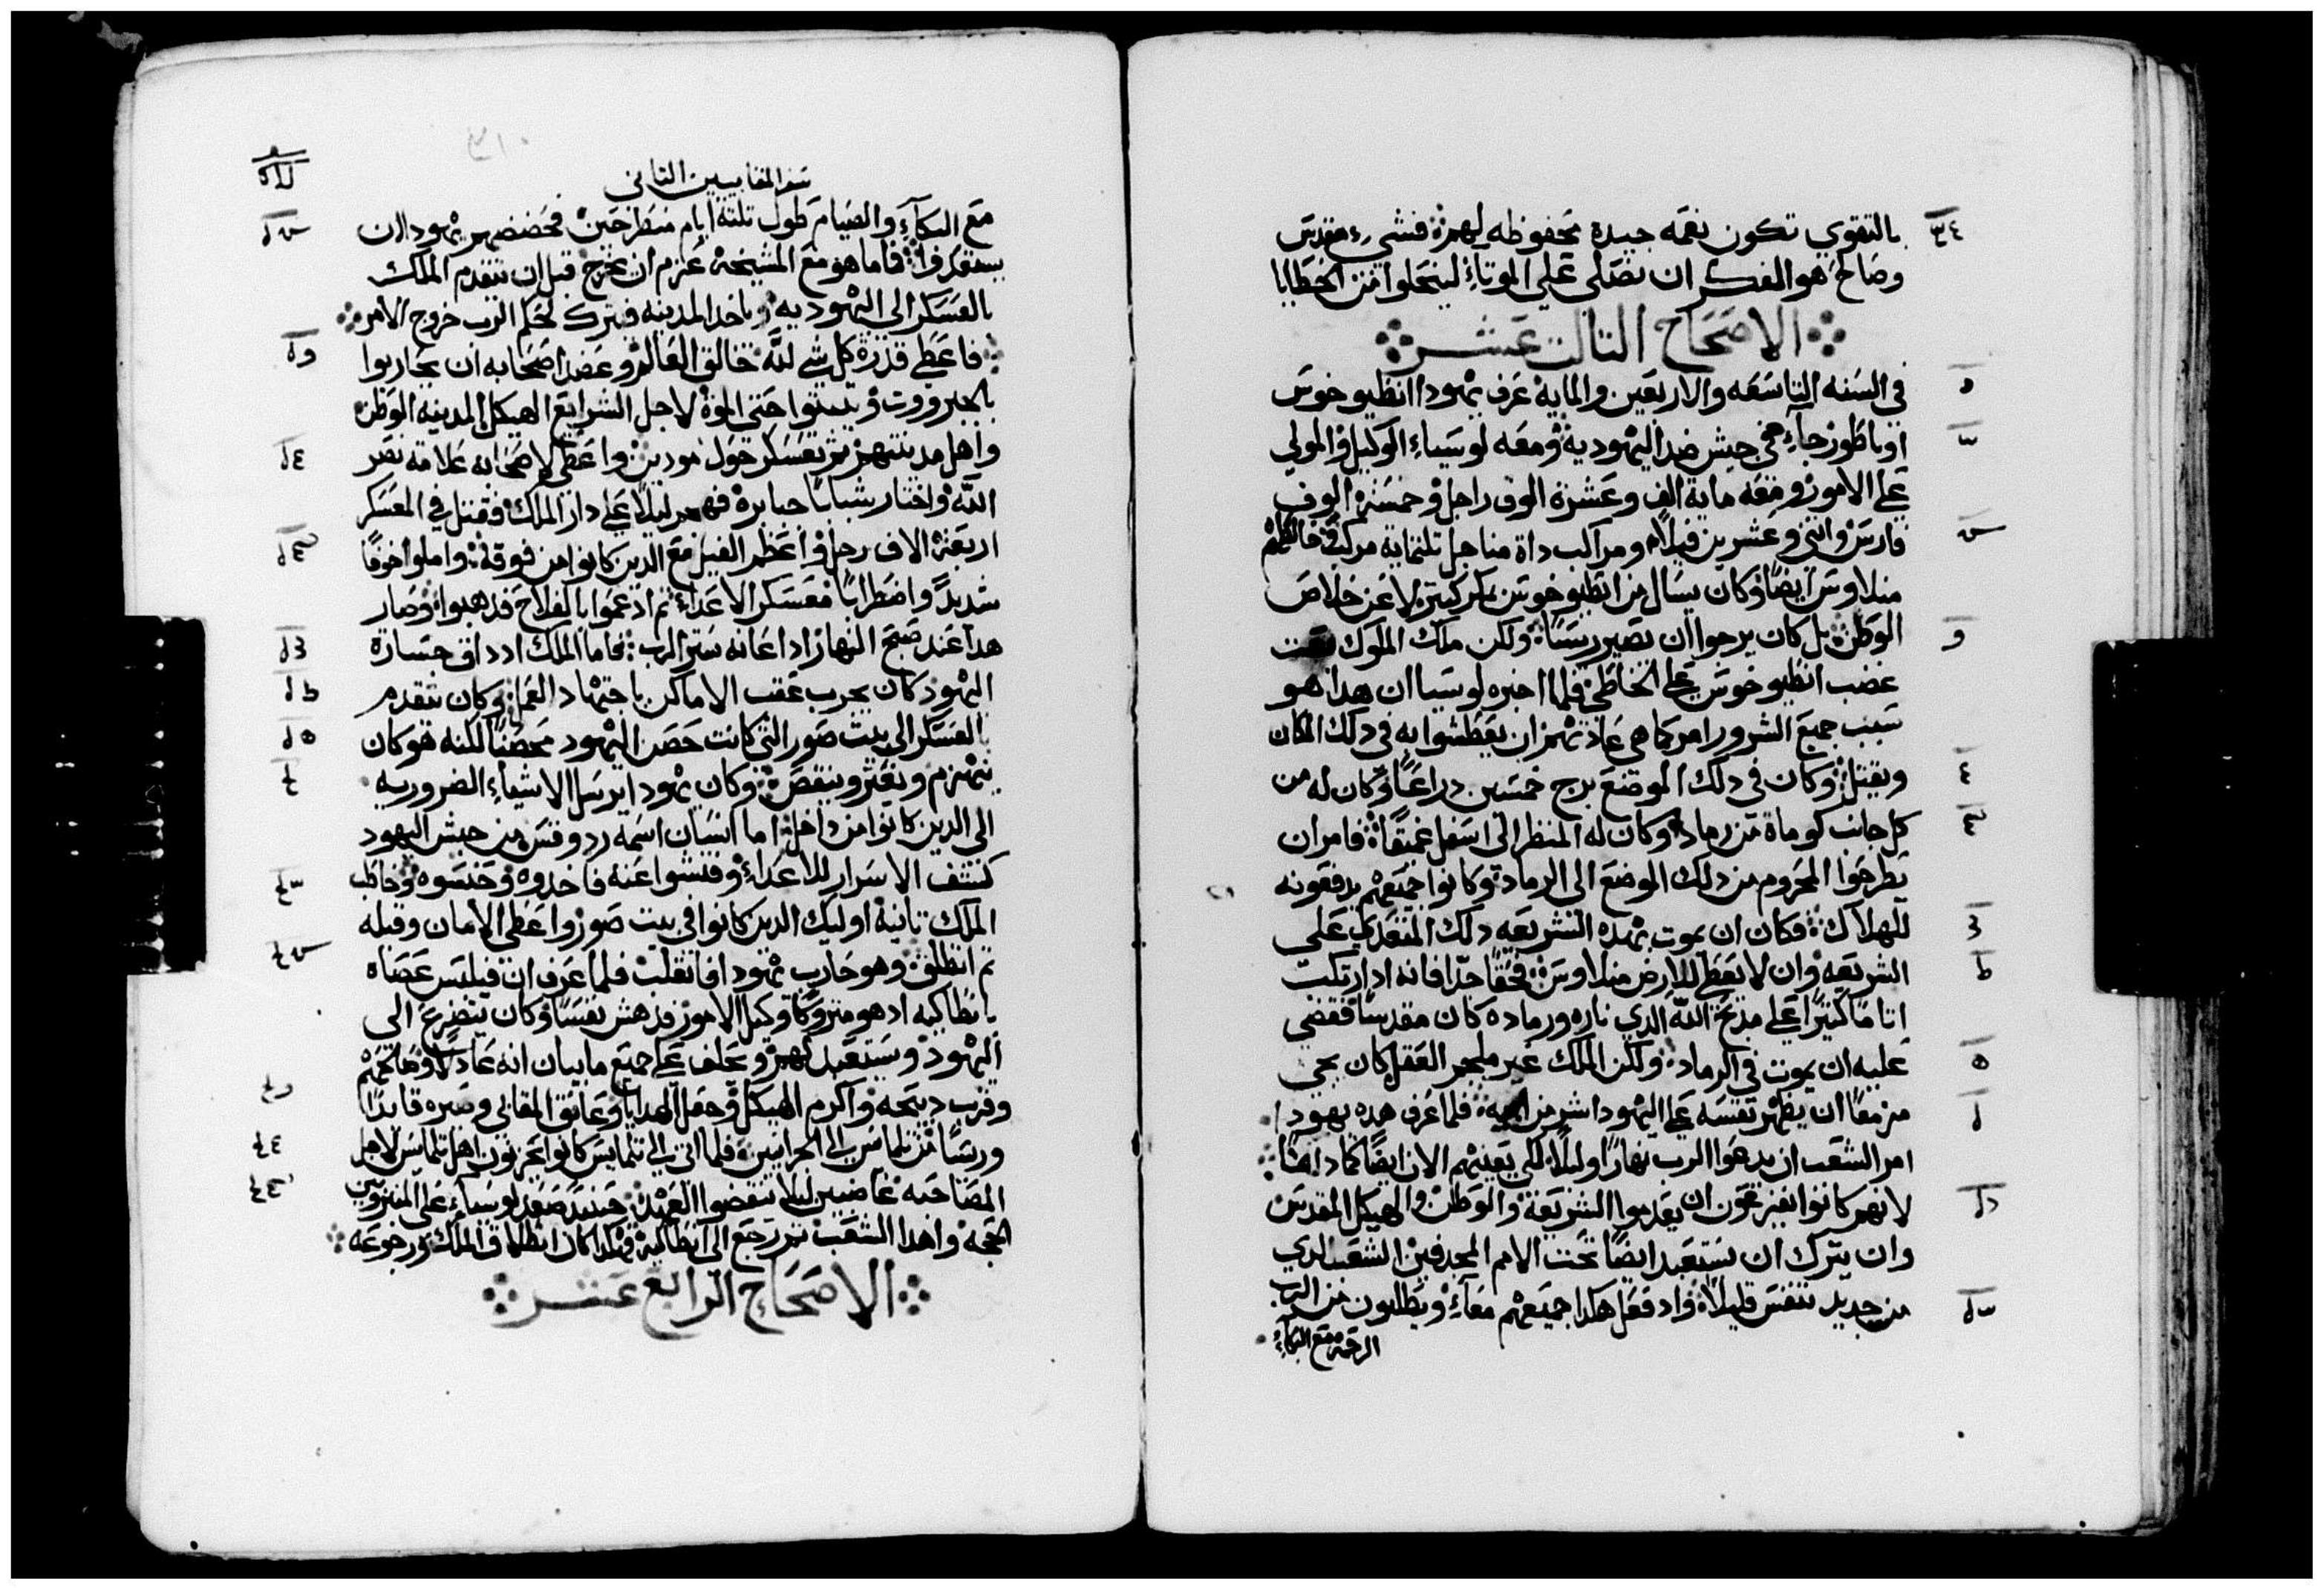 بالتقوي تكون نعمه جيده محفوظه لهم فشيء مقدس
وصالح هو الفكر ان نصلي علي الموتاء لينحلوا من الخطايا
الاصحاح التالت عشر
في السنه التاسعه والاربعين والمايه عرف يهودا انطيوخوس
اوباطور جاء في جيش ضد اليهوديه ومعه لوسياء الوكيل والمولي
علي الامور ومعه ماية الف وعشرة الوف راجل وخمسة الوف
فارس واتني وعشرين فيلا ومراكب داة مناجل تلتماية مركب وخالطهم
منلاوس ايضا وكان يسال من انطيوخوس بمكر كتير لا عن خلاص
الوطن بل كان يرجوا ان يصير ريسا ولكن ملك الملوك
غضب انطيوخوس علي الخاطي فلما اخبره لوسيا ان هدا هو
سبب جميع الشرور امر كما هي عادتهم ان يبطشوا به في دلك المكان
ويقتل وكان في دلك الموضع برج خمسين دراعا وكان له من
كل جانب كوماة من رماد وكان له المنظر الى اسفل عميقا فامر ان
يطرحوا المحروم من دلك الموضع الى الرماد وكانوا جميعهم يدفعونه
للهلاك فكان ان يموت بهده الشريعه دلك المتعدي علي
الشريعه وان لا يعطي للارض منلاوس فحقا جدا فانه اد ارتكب
اتاما كتيرا علي مدبح الله الدي ناره ورماده كان مقدسا فقضي
عليه ان يموت في الرماد ولكن الملك غير ملجم العقل كان يجي
مزمعا ان يظهر نفسه علي اليهود اشر من ابيه فلما عرف هده يهودا
امر الشعب ان يدعوا الرب نهارا وليلا لكي يعينهم الان ايضا كما دايما
لانهم كانوا يفزعون ان يعدموا الشريعة والوطن والهيكل المقدس
وان يترك ان يستعبد ايضا تحت الامم المجدفين الشعب الدي
من جديد تنفس قليلا واد فعل هكدا جميعهم معاء ويطلبون من الرب
الرحمة مع البكاء
سفر المقابيين التاني
مع البكاء والصيام طول تلتة ايام منطرحين فحضضهم يهودا ان
يستعدوا فاما هو مع المشيخة عزم ان يخرج قبل ان يتقدم الملك
بالعسكر الى اليهوديه وياخد المدينه فيترك لحكم الرب خروج الامر
فاعطي قدرة كل شي لله خالق العالم وعضد اصحابه ان يحاربوا
بالجبروت ويتبتوا حتى الموة لاجل الشرايع الهيكل المدينه الوطن
واهل مدينتهم تم تعسكر حول مودين واعطى لاصحابه علامة نصر
الله واختار شبانا جبابرة فهجم ليلا علي دار الملك وقتل في المعسكر
اربعة الاف رجل واعظم الفيل مع الدين كانوا من فوقه واملوا خوفا
شديدا واضطرابا معسكر الاعداء تم اد عموا بالفلاح فدهبوا وصار
هدا عند صبح النهار اد اعانه ستر الرب فاما الملك اد داق جسارة
اليهود كان يجرب عقب الاماكن باجتهاد العمل وكان يتقدم
بالعسكر الى بيت صور التي كانت حصن اليهود محصنا لكنه هو كان
ينهزم ويعتر وينقص وكان يهودا يرسل الاشياء الضروريه
الى الدين كانوا من داخل اما انسان اسمه ردوفس من جيش اليهود
كشف الاسرار للاعداء وفتشوا عنه فاخدوه وحبسوه وخاطب
الملك تانية اوليك الدين كانوا في بيت صور واعطى الامان وقبله
تم انطلق وهو حارب يهودا فانغلب فلما عرف ان فيلبس عصاه
بانطاكيه اد هو متروكا وكيل الامور فدهش نفسا وكان يتضرع الى
اليهود ويستعبد لهم ويحلف علي جميع ما يبان انه عادلا وصالحهم
وقرب دبيحه واكرم الهيكل وجعل الهدايا وعانق المقابي وصيره قايدا
وريسا من تلماس الى الجرانيين فلما اتى الى تلمايس كانوا يحزنون اهل تلمايس لاجل
المصاحبه غاضبين ليلا تنقضوا العهد حينيد صعد لوسياء على المنبر وبين
الحجه واهدا الشعب تم رجع الى انطاكية وهكدا كان انطلاق الملك ورجوعه
الاصحاح الرابع عشر